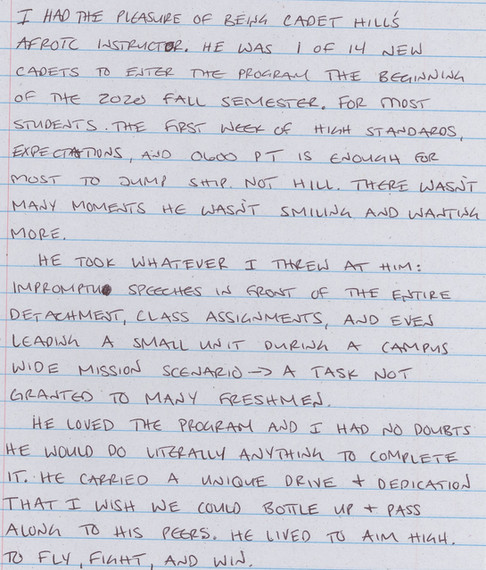 I HAD THE PLEASURE OF BEING CADET HILL'S
AFROTC INSTRUCTOR. HE WAS 1 OF 14 NEW
CADETS TO ENTER THE PROGRAM THE BEGINNING
OF THE 2020 FALL SEMESTER. FOR MOST
STUDENTS. THE FIRST WEEK OF HIGH STANDARDS,
EXPECTATIONS, AND 0600 PT IS ENOUGH FOR
MOST TO JUMP SHIP. NOT HILL. THERE WASN'T
MANY MOMENTS HE WASN'T SMILING AND WANTING
MORE.
HE TOOK WHATEVER I THREW AT HIM:
IMPROMPTU SPEECHES IN FRONT OF THE ENTIRE
DETACHMENT, CLASS ASSIGNMENTS, AND EVEN
LEADING A SMALL UNIT DURING A CAMPUS
WIDE MISSION SCENARIO → A TASK NOT
GRANTED TO MANY FRESHMEN.
HE LOVED THE PROGRAM AND I HAD NO DOUBTS
HE WOULD DO LITERALLY ANYTHING TO COMPLETE
IT. HE CARRIED A UNIQUE DRIVE + DEDICATION
THAT I WISH WE COULD BOTTLE UP + PASS
ALONG TO HIS PEERS. HE LIVED TO AIM HIGH.
TO FLY, FIGHT, AND WIN.